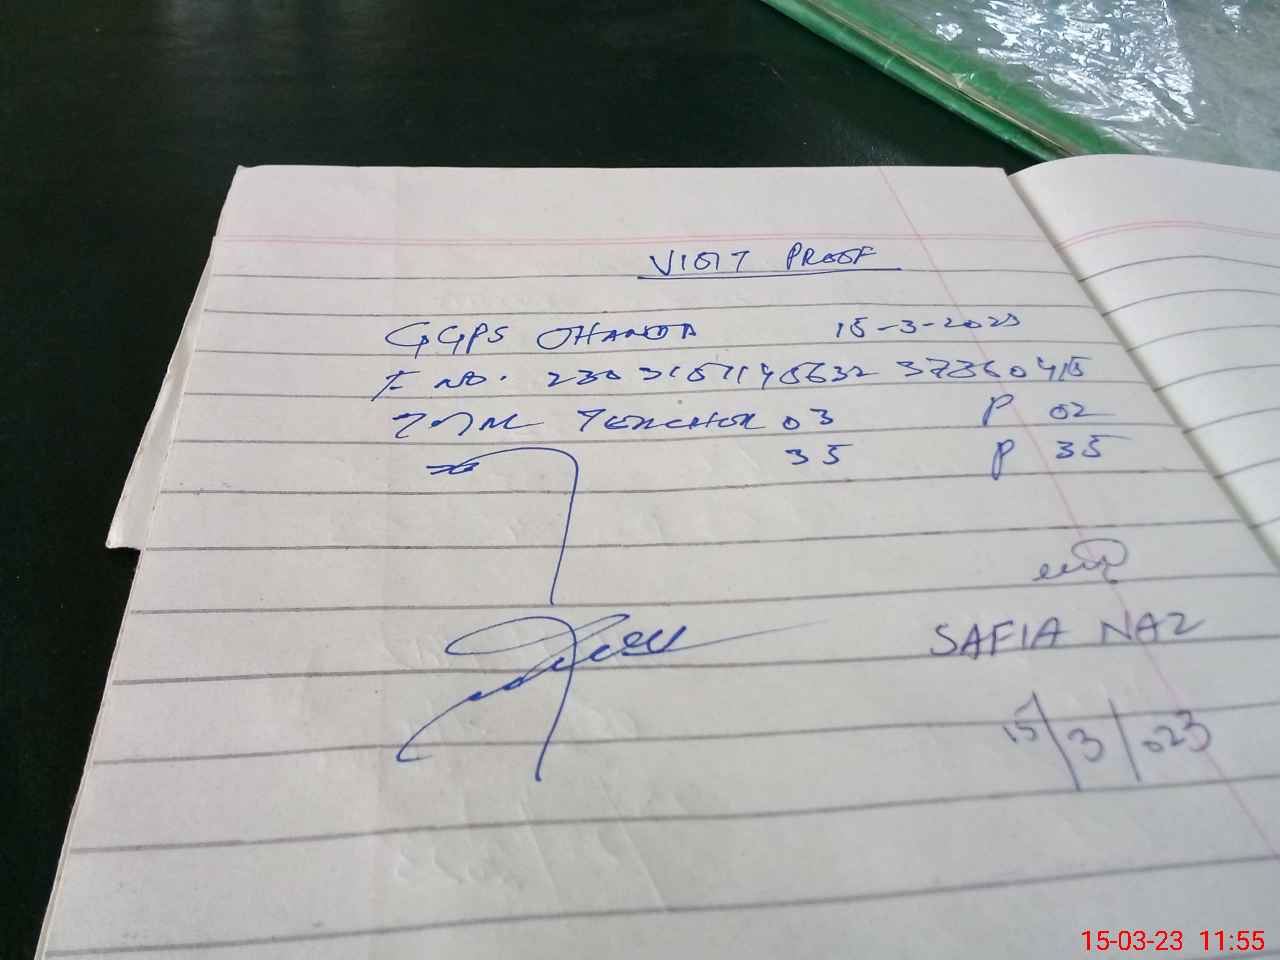 VISIT PROOF
GGPS 15-3-2023
F NO. 230315114563237360415
TOTAL TEACHER 03 P 02
35 P 35
SAFIA NAZ
15/3/023
15-03-23 11:55